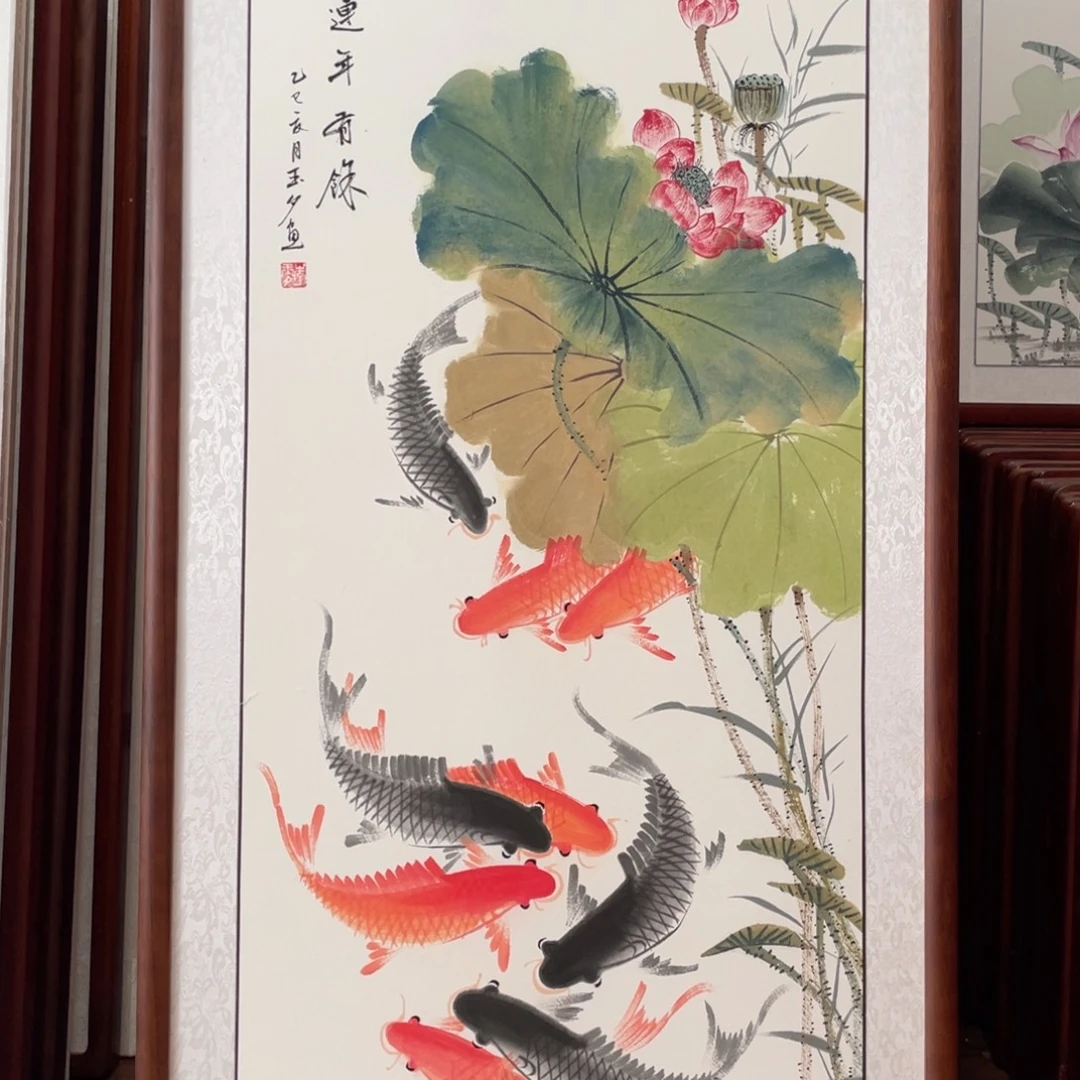 連年有餘
乙巳六月玉夕画